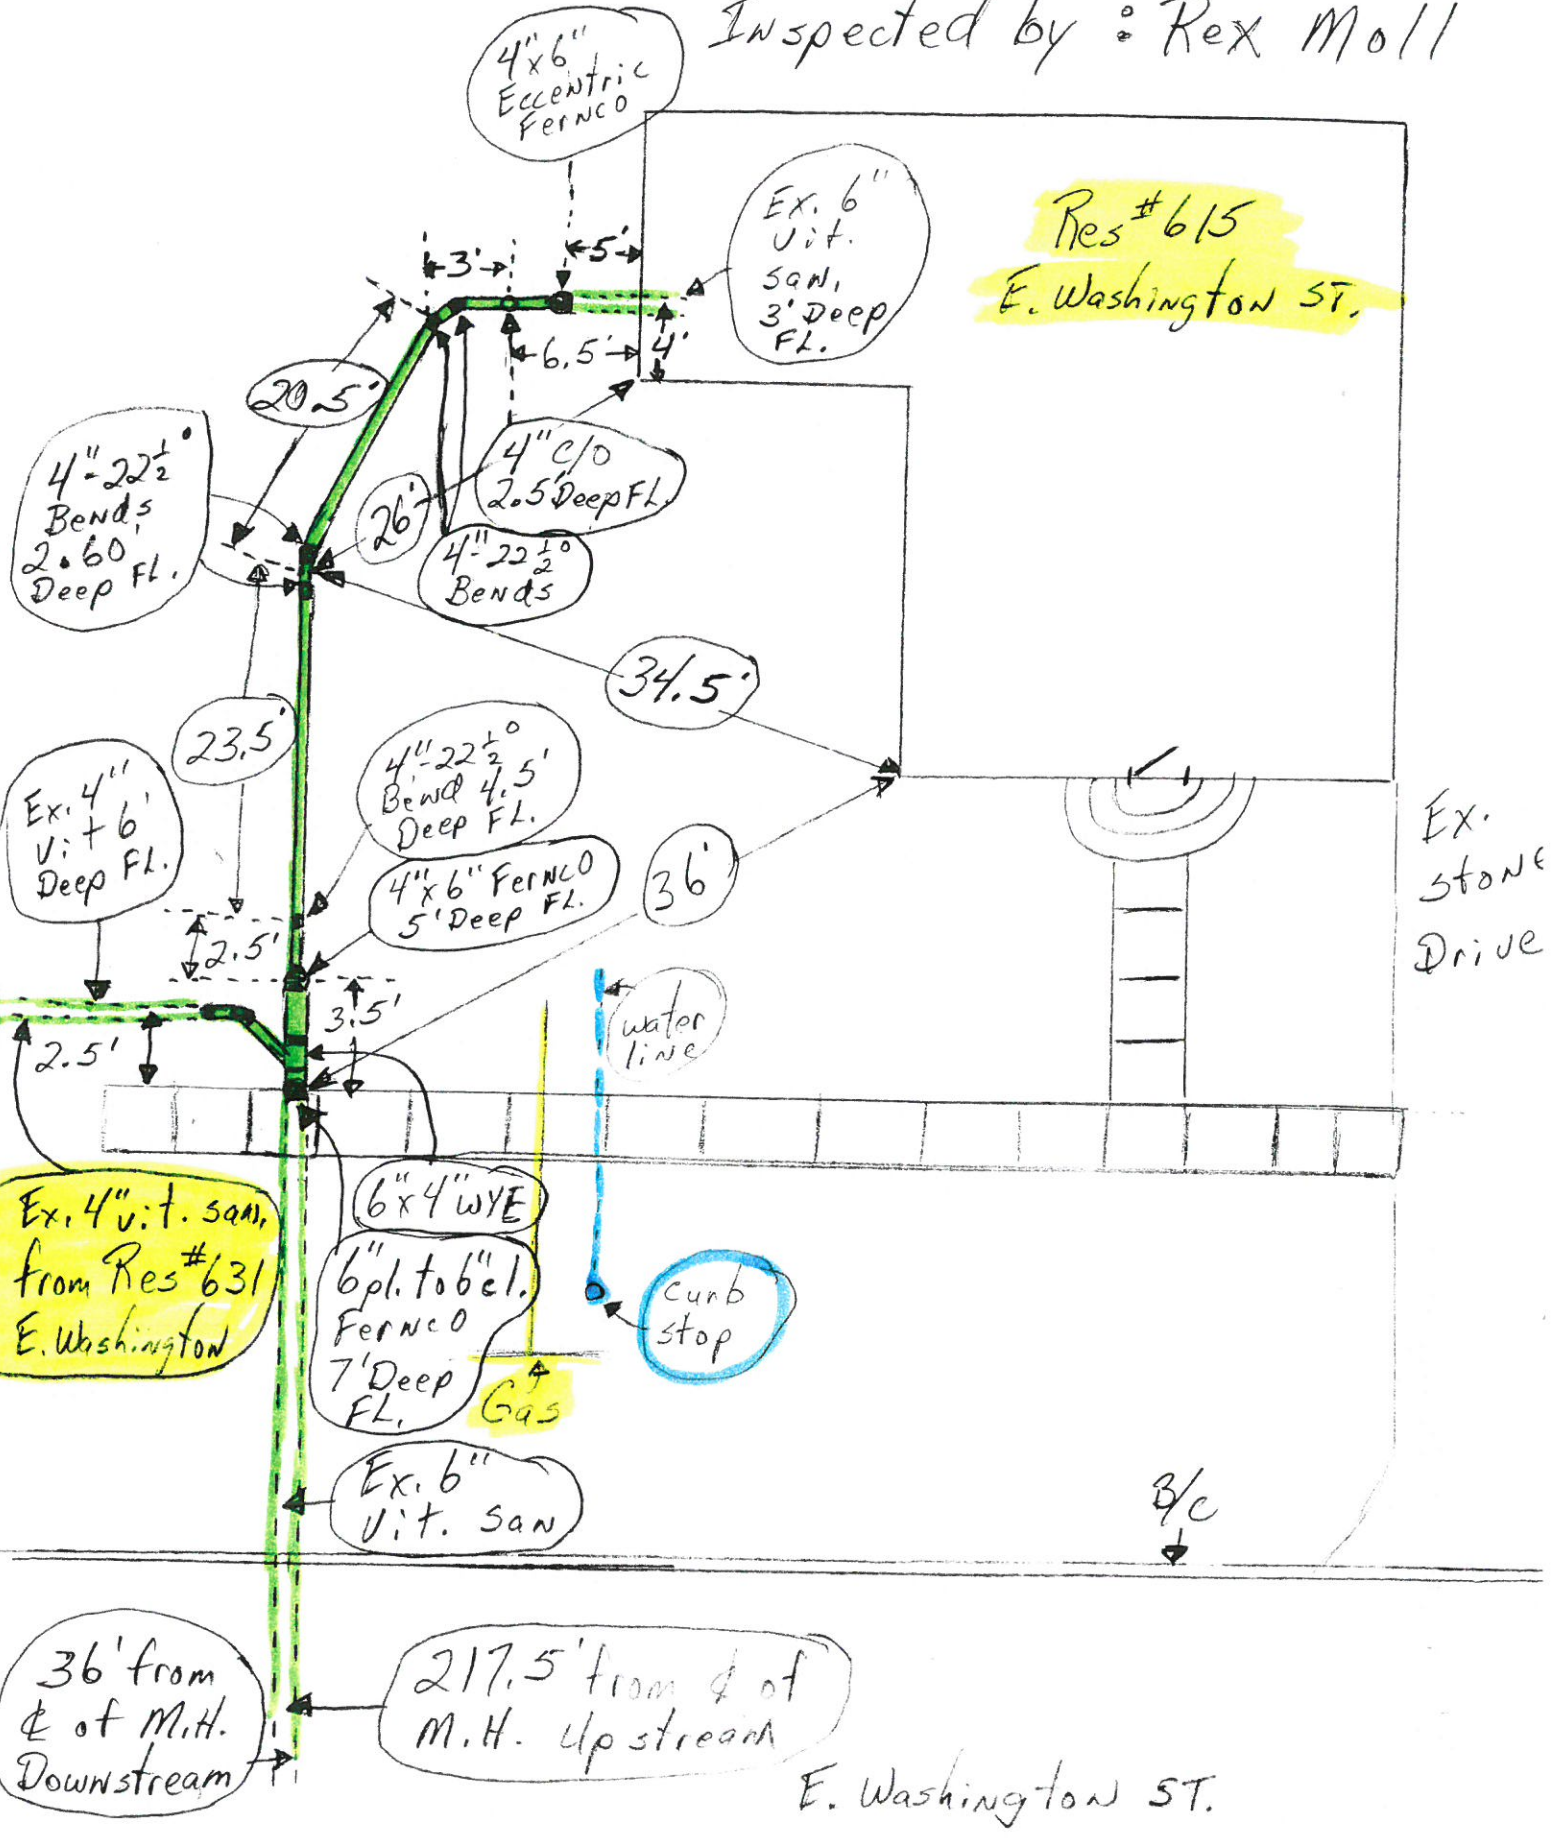 Inspected by : Rex Moll
4"x6"
Eccentric
Fernco
Res #615
E. Washington ST.
Ex. 6"
vit.
san.
3' Deep
FL.
5'
3'
6.5'
4'
20.5'
4"-22½°
Bends
2.60'
Deep FL.
4" C/O
2.5' Deep FL.
26'
4"-22½°
Bends
34.5'
23.5'
4"-22½°
Bend 4.5'
Deep FL.
Ex. 4"
vit 6'
Deep FL.
4"x6" Fernco
5' Deep FL.
36'
Ex.
stone
Drive
2.5'
3.5'
2.5'
water
line
Ex. 4" vit. san.
from Res #631
E. Washington
6"x4" WYE
6" pl. to 6" cl.
Fernco
7' Deep
FL.
curb
stop
Gas
Ex. 6"
vit. san
B/C
36' from
℄ of M.H.
Downstream
217.5' from ℄ of
M.H. Upstream
E. Washington ST.